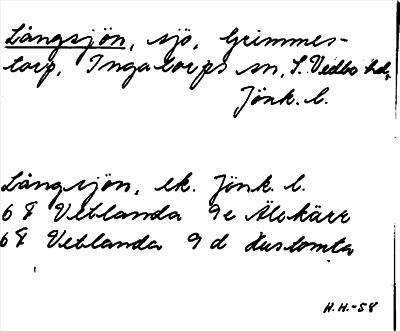 Långsjön, sjö, Grimmes-
torp, Ingatorps sn, S. Vedbo hd,
Jönk. l.
Långsjön, ek. Jönk. l.
6 F Vetlanda 9 e Älekärr
6 F Vetlanda 9 d
H.H.-58